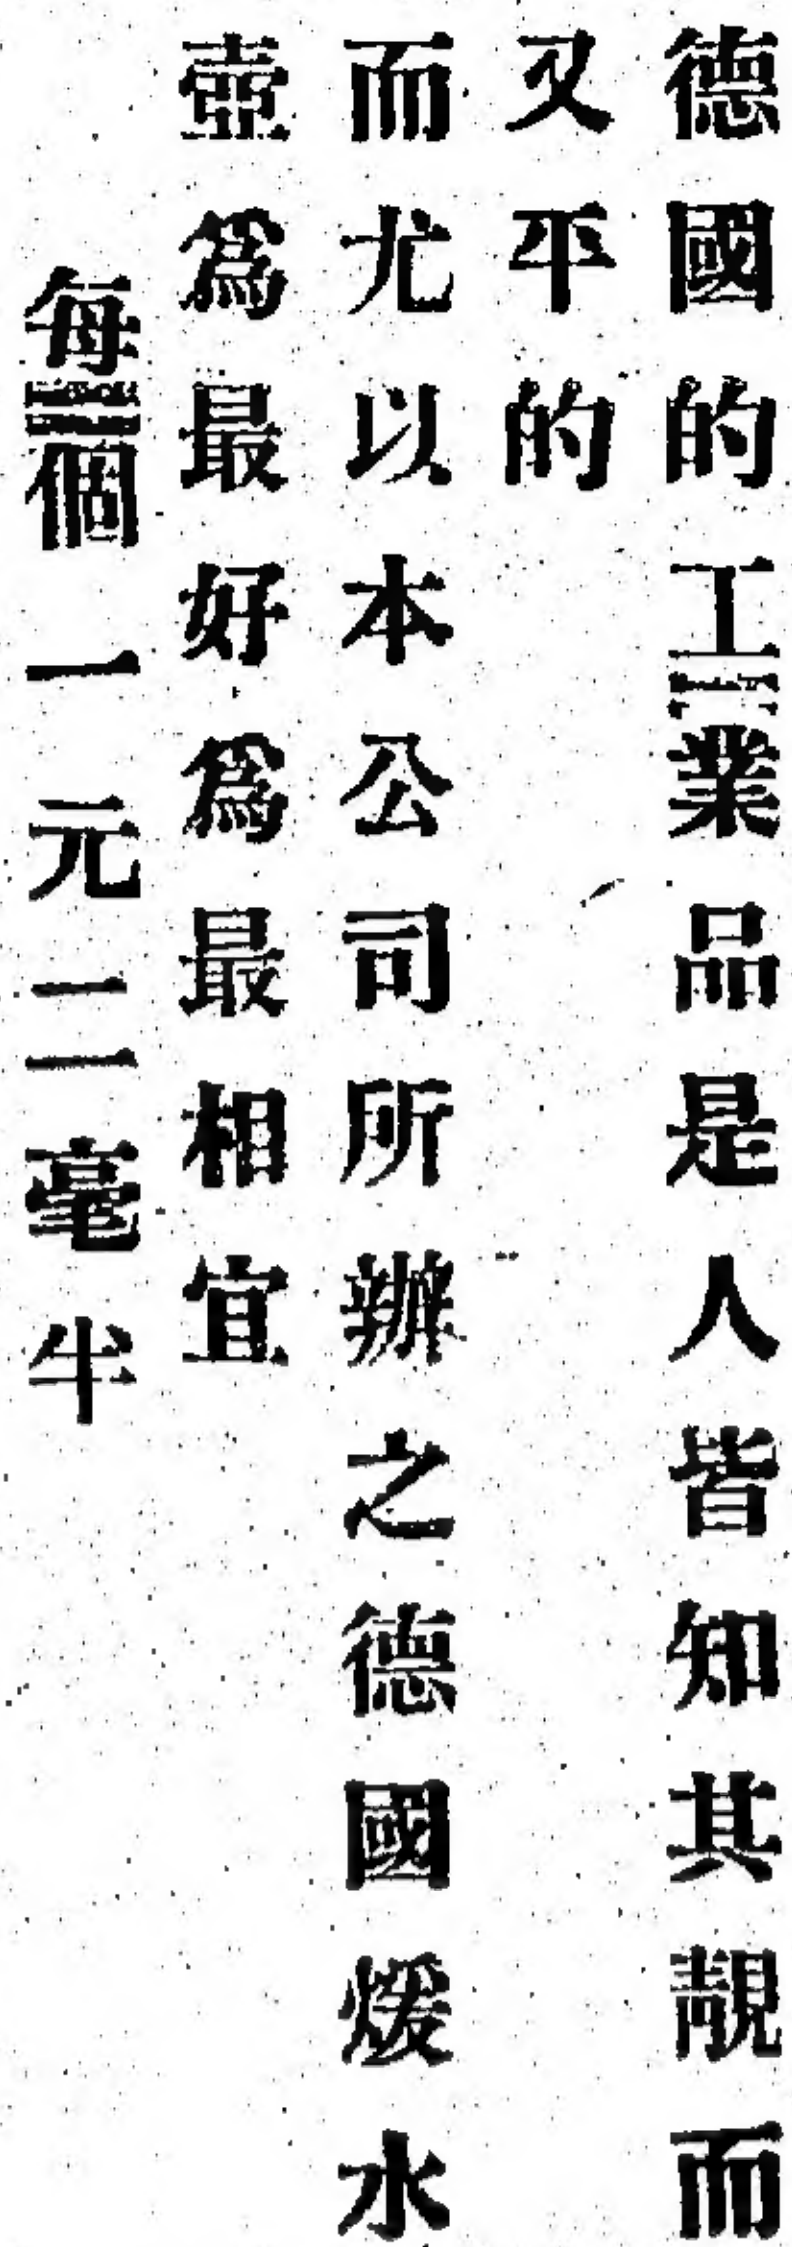 德國的工業品是人皆知其靚而
又平的
而尤以本公司所辦之德國煖水
壺爲最好爲最相宜
每個一元二毫半